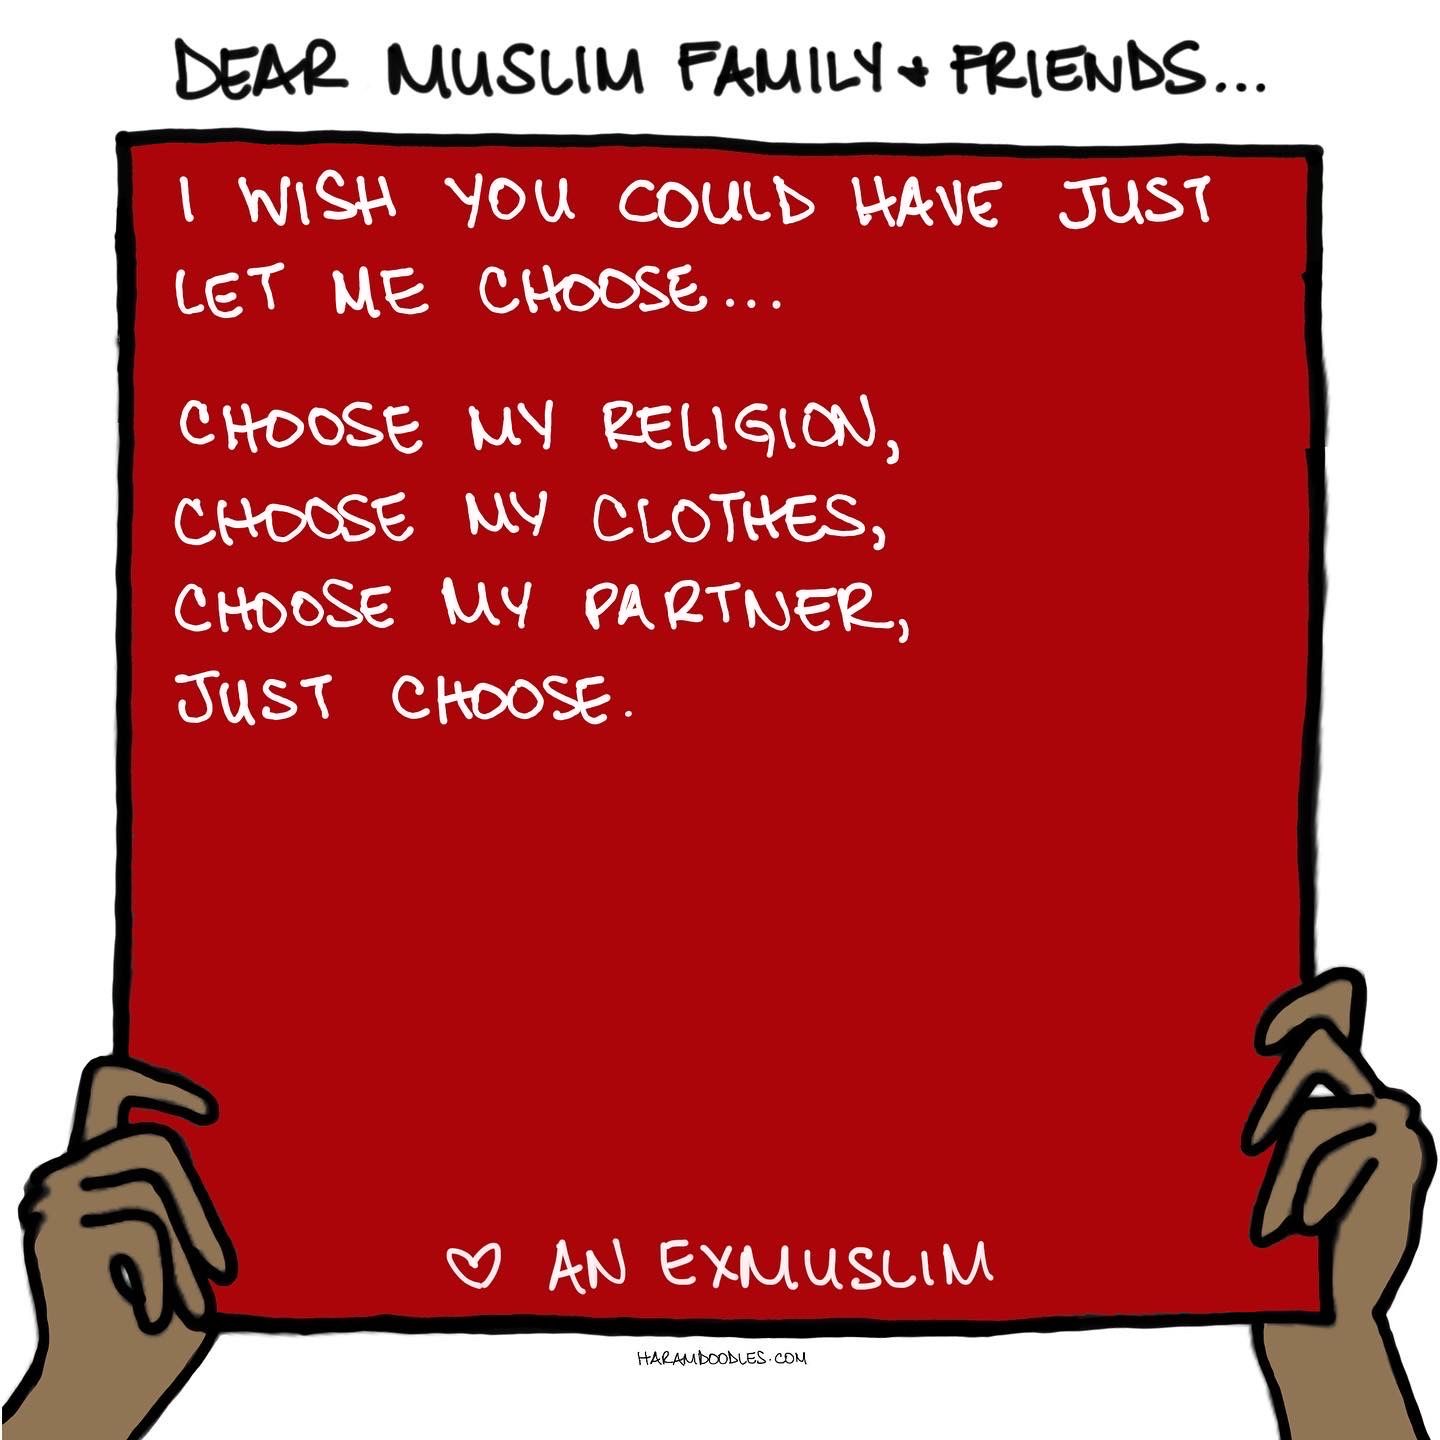 DEAR MUSLIM FAMILY + FRIENDS...
I WISH YOU COULD HAVE JUST
LET ME CHOOSE...
CHOOSE MY RELIGION,
CHOOSE MY CLOTHES,
CHOOSE MY PARTNER,
JUST CHOOSE.
♡ AN EXMUSLIM
HARAMDOODLES.COM